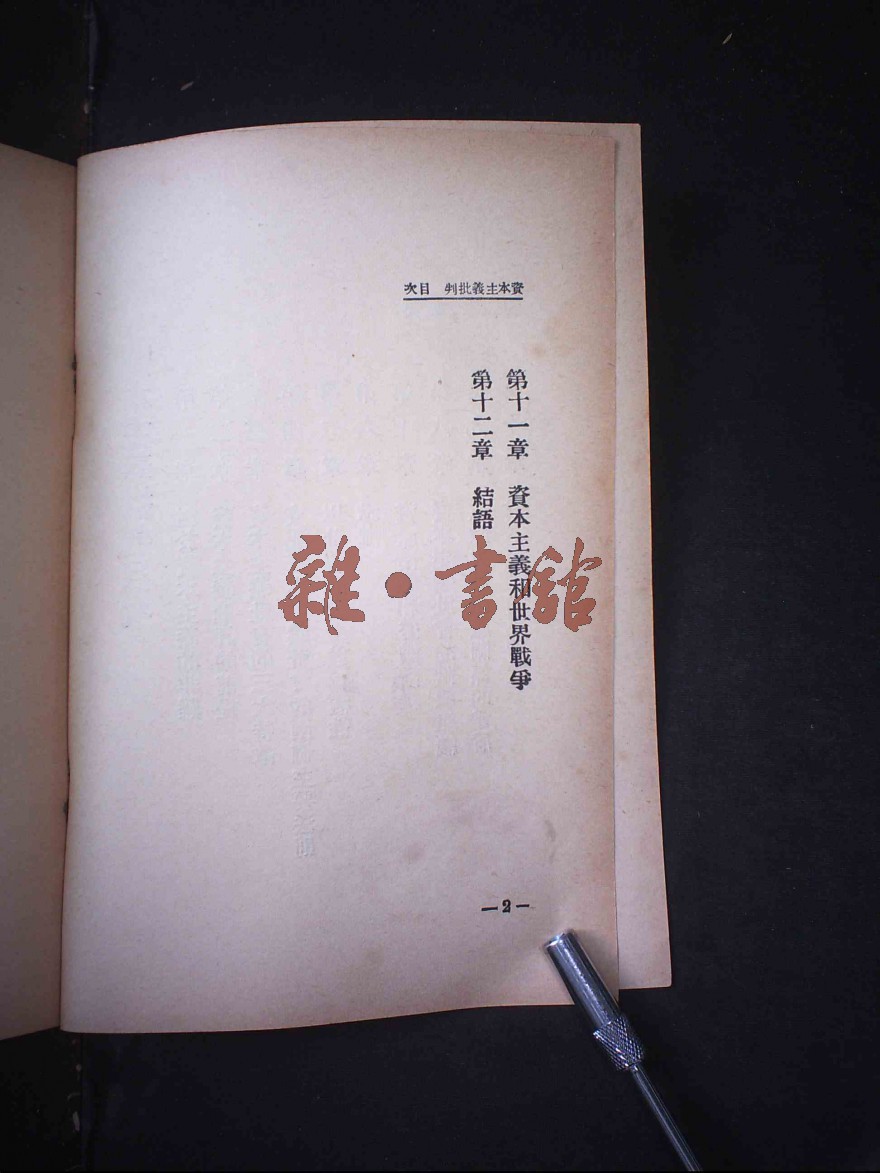 資本主義批判　目次
第十一章　資本主義和世界戰爭
第十二章　結語
雜・書館
—2—